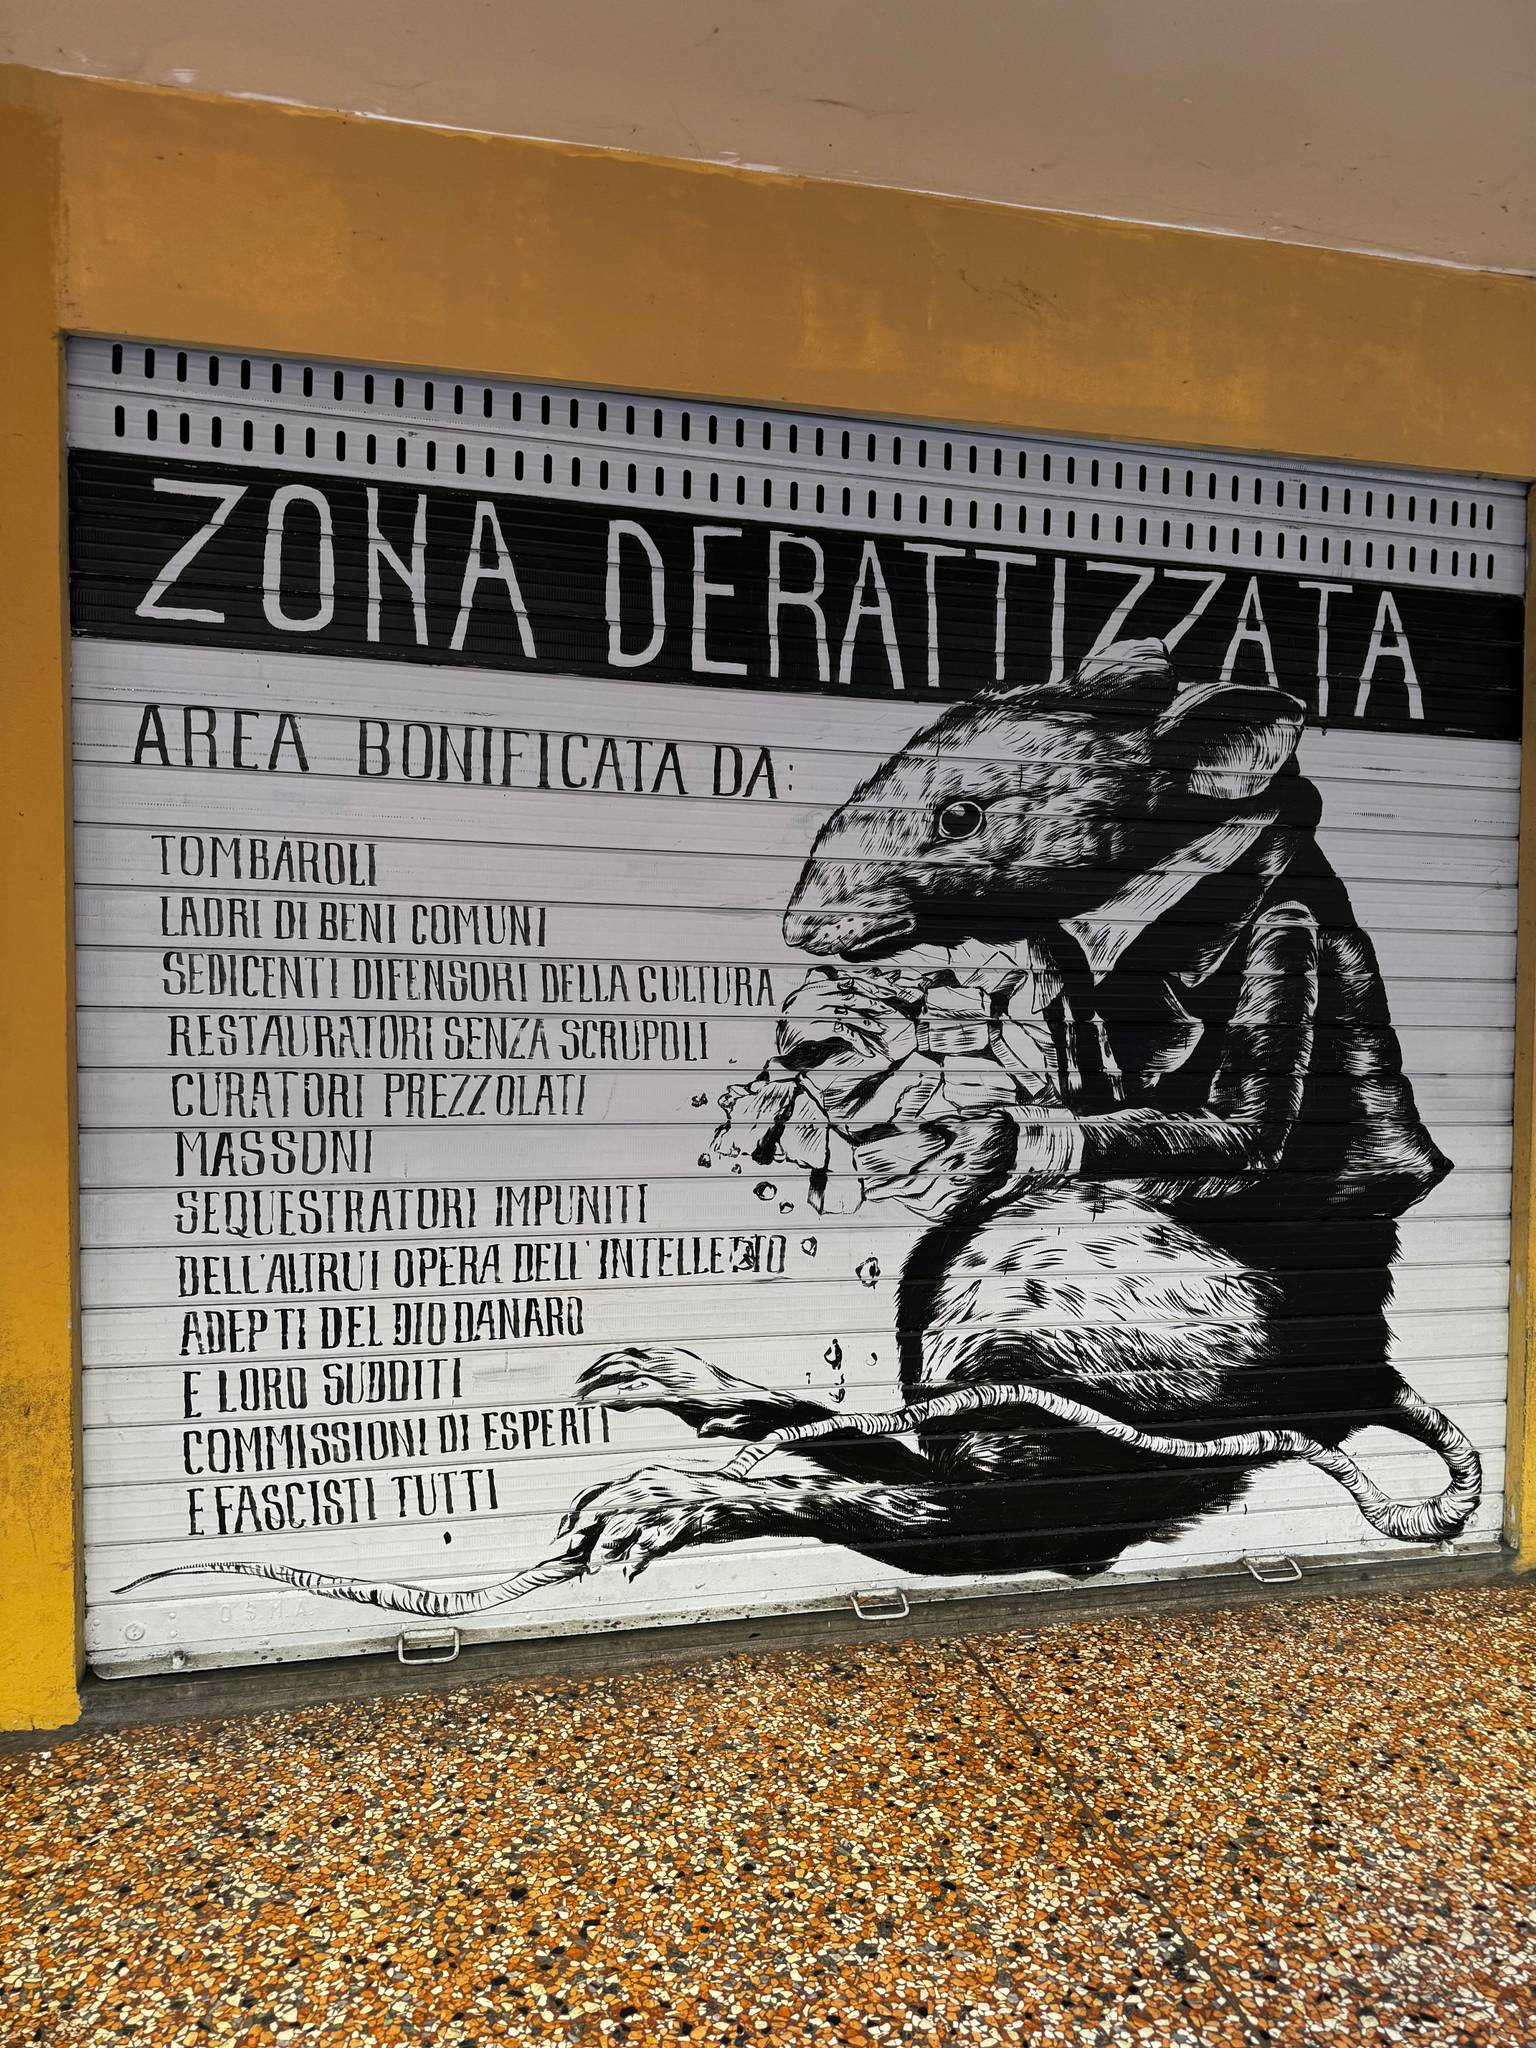 ZONA DERATTIZZATA
AREA BONIFICATA DA:
TOMBAROLI
LADRI DI BENI COMUNI
SEDICENTI DIFENSORI DELLA CULTURA
RESTAURATORI SENZA SCRUPOLI
CURATORI PREZZOLATI
MASSONI
SEQUESTRATORI IMPUNITI
DELL'ALTRUI OPERA DELL'INTELLETTO
ADEPTI DEL DIO DANARO
E LORO SUDDITI
COMMISSIONI DI ESPERTI
E FASCISTI TUTTI
O.S.M.A.